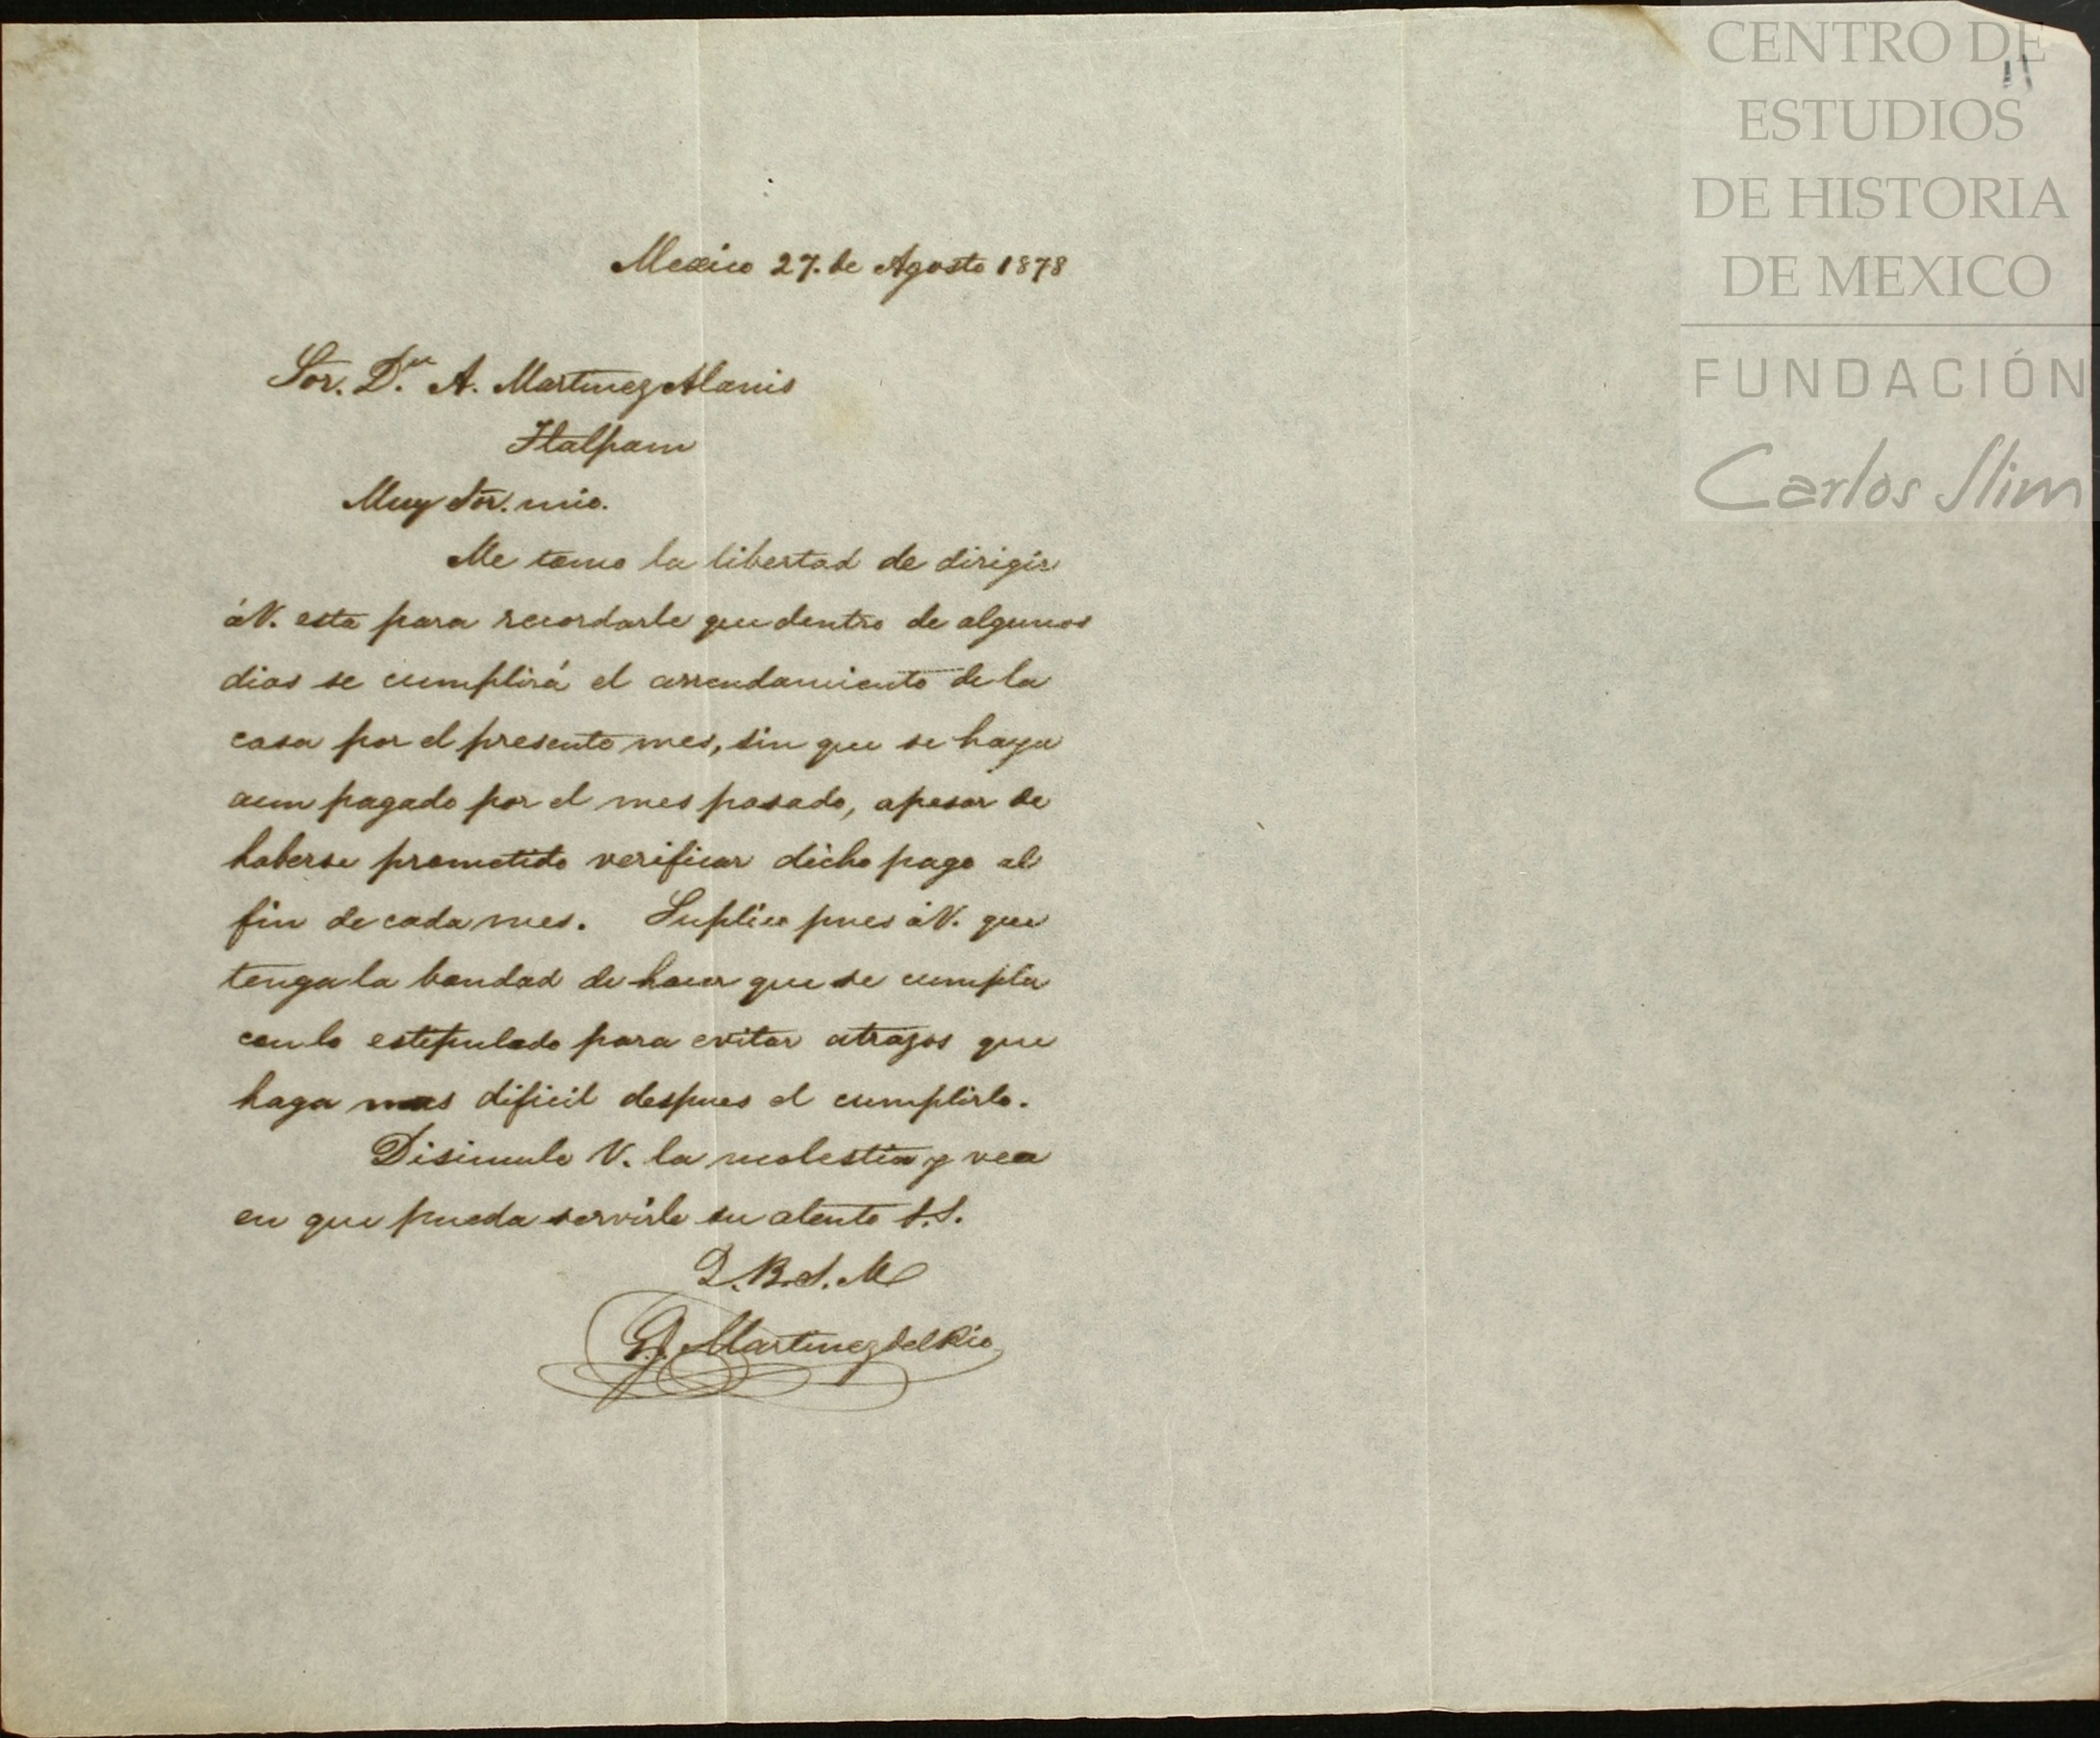 CENTRO DE
ESTUDIOS
DE HISTORIA
DE MEXICO
FUNDACIÓN
Carlos Slim
11
Mexico 27. de Agosto 1878
Sor. Dn. A. Martinez Alanis
Tlalpam
Muy Sor. mio.
Me tomo la libertad de dirigir
á V. esta para recordarle que dentro de algunos
dias se cumplirá el arrendamiento de la
casa por el presente mes, sin que se haya
aun pagado por el mes pasado, apesar de
haberse prometido verificar dicho pago al
fin de cada mes. Suplico pues á V. que
tenga la bondad de hacer que se cumpla
con lo estipulado para evitar atrazos que
haga mas dificil despues el cumplirlo.
Disimule V. la molestia y vea
en que pueda servirle su atento S.S.
Q.B.S.M
Martinez del Rio